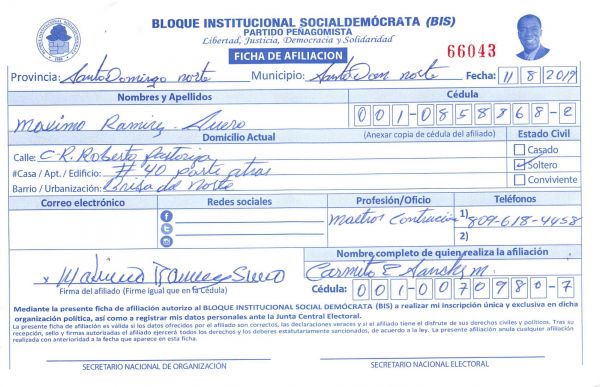 BLOQUE INSTITUCIONAL SOCIALDEMÓCRATA (BIS)
PARTIDO PEÑAGOMISTA
Libertad, Justicia, Democracia y Solidaridad
FICHA DE AFILIACION
66043
Provincia: Santo Domingo norte Municipio: Santo Dom norte Fecha: 11 8 2019
Nombres y Apellidos Cédula
Maximo Ramirez Suero 001-0858868-2
Domicilio Actual (Anexar copia de cédula del afiliado) Estado Civil
Calle: C.R. Roberto Pastoriza Casado
#Casa / Apt. / Edificio: # 40 parte atras Soltero
Barrio / Urbanización: Brisa del Norte Conviviente
Correo electrónico Redes sociales Profesión/Oficio Teléfonos
Maetros Contrucion 1) 809-618-4458
2)
Nombre completo de quien realiza la afiliación
Carmito E Sanchez M.
x Maximo Ramirez Suero
Firma del afiliado (Firme igual que en la Cédula) Cédula: 001-0070980-7
Mediante la presente ficha de afiliación autorizo al BLOQUE INSTITUCIONAL SOCIAL DEMÓCRATA (BIS) a realizar mi inscripción única y exclusiva en dicha
organización política, así como a registrar mis datos personales ante la Junta Central Electoral.
La presente ficha de afiliación es válida si los datos ofrecidos por el afiliado son correctos, las declaraciones veraces y si el afiliado tiene el disfrute de sus derechos civiles y políticos. Tras su
recepción, sello y firmas autorizadas el afiliado ejercerá todos los derechos y los deberes estatutariamente sancionados, de acuerdo a la ley. La presente afiliación anula cualquier afiliación
realizada con anterioridad a la fecha que aparece en esta ficha.
SECRETARIO NACIONAL DE ORGANIZACIÓN SECRETARIO NACIONAL ELECTORAL